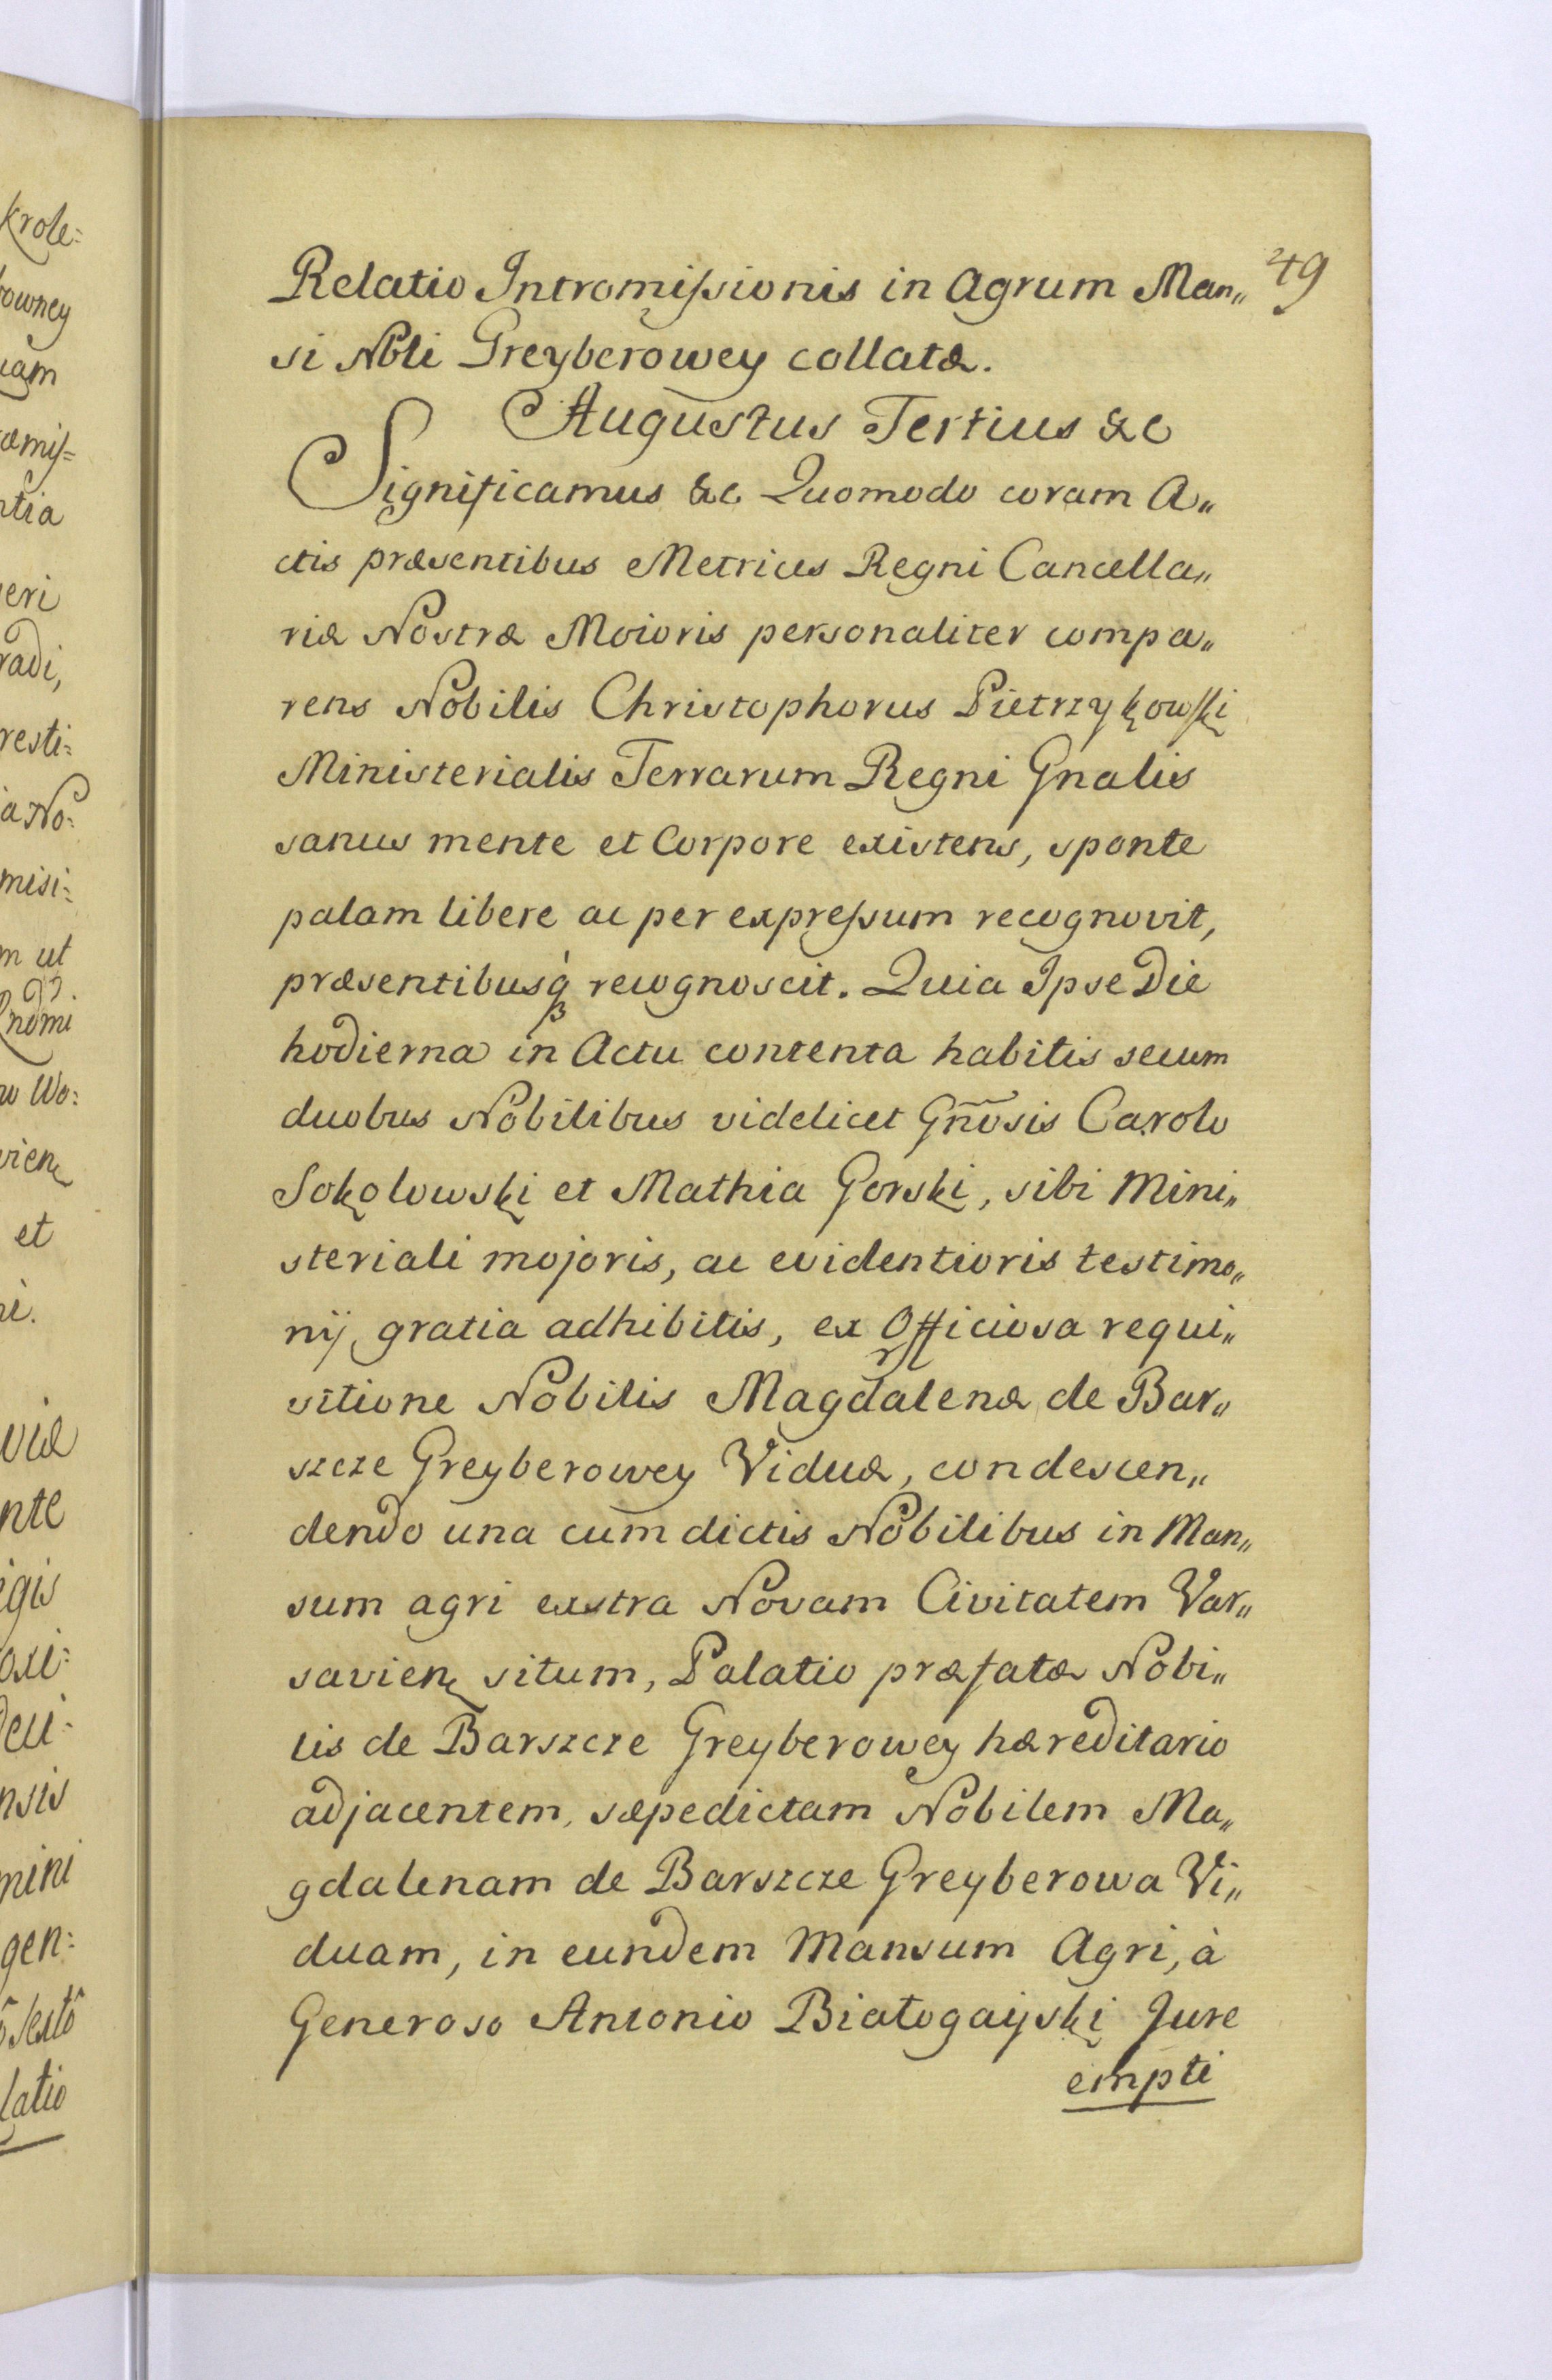 krole=
owney
uam
æmiſ=
ntia
eri
radi,
resti=
ia No=
misi=
m ut
nomi
w Wo=
vien
et
ni.
viæ
nte
egis
oxi=
deci=
nsis
mini
gen=
sextô
latio
49
Relatio Intromiſsionis in Agrum Man„
si Nbli Greyberowey collatæ.
Augustus Tertius &c
Significamus &c Quomodo coram A„
ctis præsentibus Metrices Regni Cancella„
riæ Nostræ Moioris personaliter compa„
rens Nobilis Christophorus Pietrzykowſki
Ministerialis Terrarum Regni Gnalis
sanus mente et Corpore existens, sponte
palam libere ac per expreſsum recognovit,
præsentibusq́ꝫ recognoscit. Quia Ipse Die
hodierna in Actu contenta habitis secum
duobus Nobilibus videlicet Gn̄osis Carolo
Sokolowski et Mathia Gorski, sibi Mini„
steriali mojoris, ac evidentioris testimo„
nij gratia adhibitis, ex Officiosa requi„
sitione Nobilis Magdalenæ de Bar„
szcze Greyberowey Viduæ, condescen„
dendo una cum dictis Nobilibus in Man„
sum agri exstra Novam Civitatem Var„
savien situm, Palatio præfatæ Nobi„
lis de Barszcze Greyberowey hæreditario
adjacentem, sæpedictam Nobilem Ma„
gdalenam de Barszcze Greyberowa Vi„
duam, in eundem Mansum Agri, à
Generoso Antonio Białogayski Jure
empti